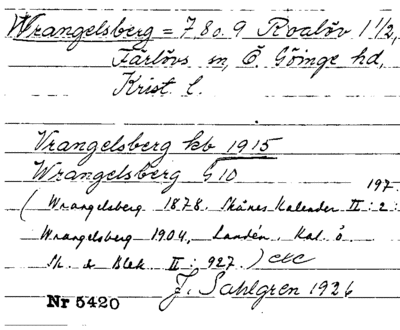 Wrangelsberg = 7 8 o. 9 Roalöv 1 1/2,
Färlövs sn, Ö. Göinge hd,
Krist l.
Vrangelsberg kb 1915
Wrangelsberg G 10
(Wrangelsberg 1878. Skånes Kalender II : 2 : 197.
Wrangelsberg 1904, Landén. Kal. ö.
Sk. & Blek II : 927.) CKC
J. Sahlgren 1926
Nr 5420